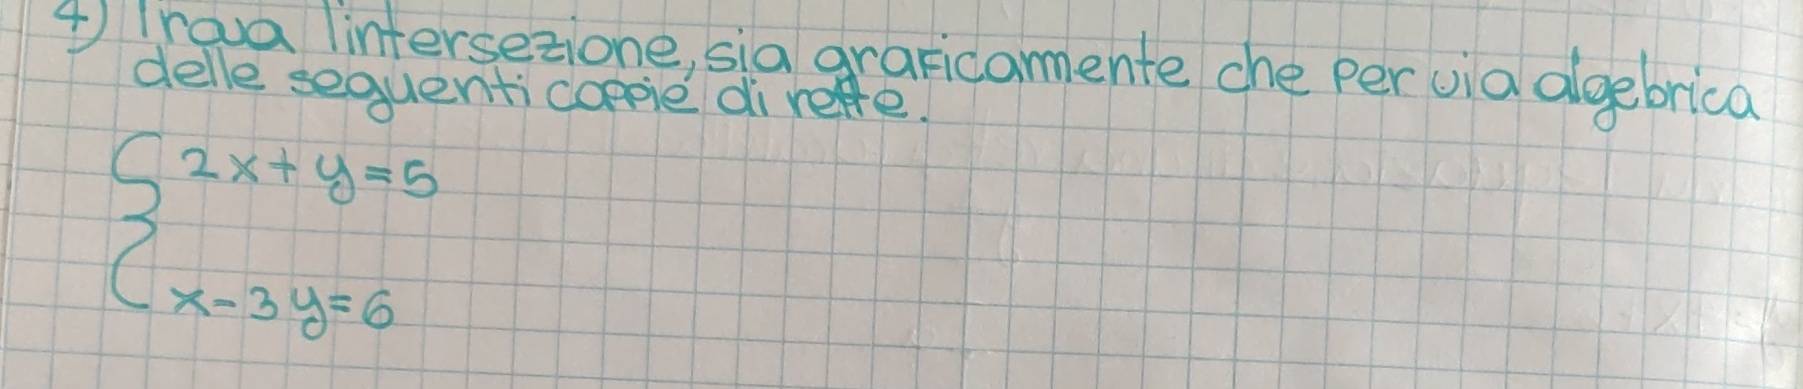 4) Trova l'intersezione, sia graficamente che per via algebrica
delle seguenti coppie di rette.
2x+y=5
x-3y=6